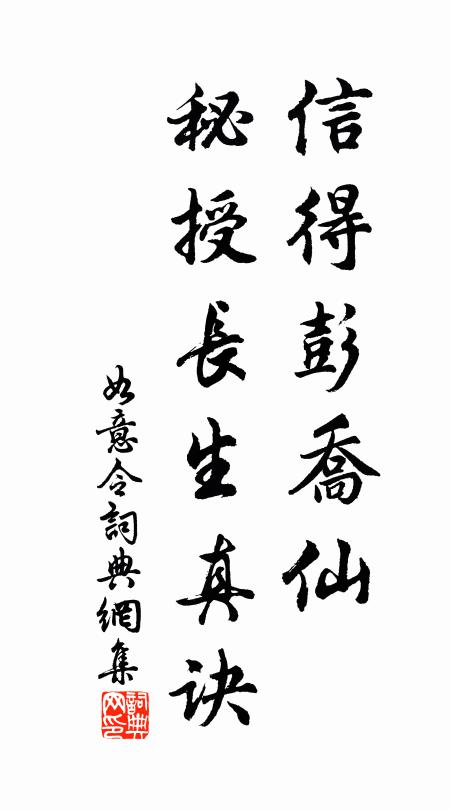 信得彭喬仙
秘授長生真訣
如意令詞典網集
詞典網印